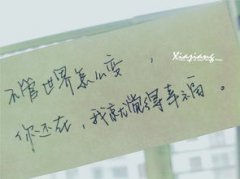 不管世界怎么变，
Xiaqiang
你还在，我就觉得幸福。